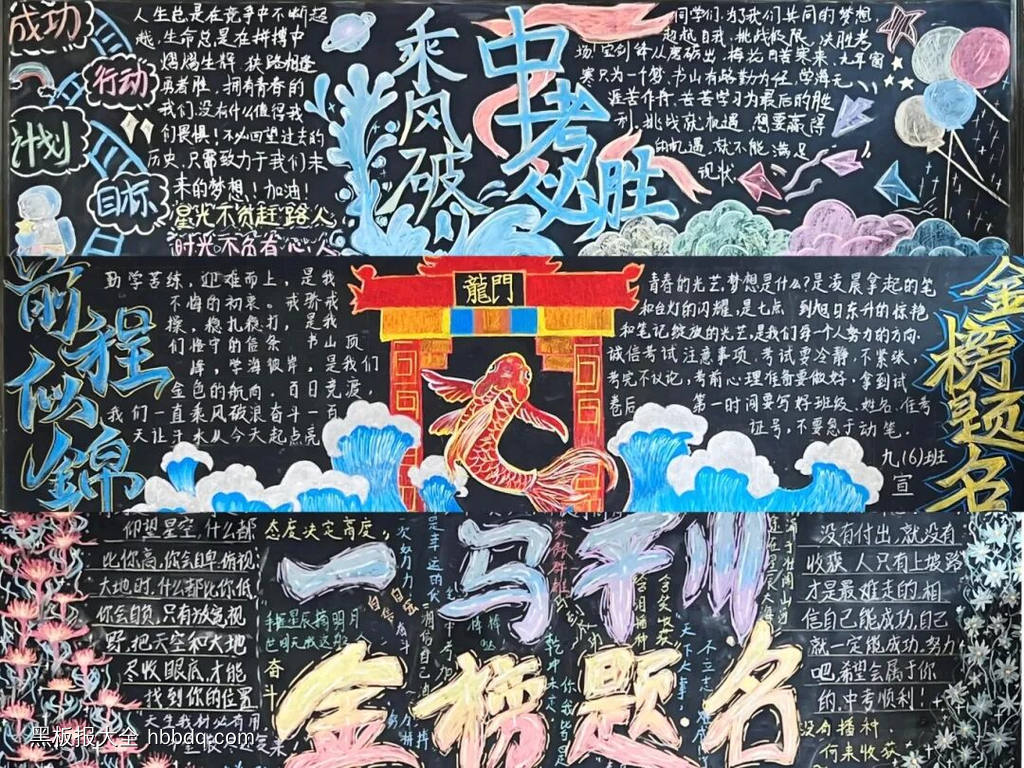 成功
行动
计划
目标
人生总是在竞争中不断超
越,生命总是在拼搏中
熠熠生辉.狭路相逢
勇者胜,拥有青春的
我们,没有什么值得我
们畏惧!不必回望过去的
历史,只需致力于我们未
来的梦想!加油!
星光不负赶路人
时光不负有心人
乘风破
中考必胜
同学们,为了我们共同的梦想,
超越自我,挑战极限,决胜考
场.宝剑锋从磨砺出,梅花香自苦寒来.九年寒
窗只为一个梦.书山有路勤为径,学海无
涯苦作舟.苦苦学习为最后的胜
利,挑战就机遇,想要赢得
的机遇,就不能满足
现状.
前程似錦
勤学苦练,迎难而上,是我
不悔的初衷。戒骄戒
躁,稳扎稳打,是我
们恪守的信条 书山顶
峰,学海彼岸,是我们
金色的航向.百日竞渡
我们一直乘风破浪奋斗一百
天让斗水从今天起点亮
龍門
青春的光芒,梦想是什么?是凌晨拿起的笔
和台灯的闪耀,是七点 到旭日东升的惊艳
和笔记绽放的光芒,是我们每一个人努力的方向.
诚信考试注意事项.考试要冷静,不紧张,
考完不议论,考前心理准备要做好,拿到试
卷后 第一时间要写好班级、姓名、准考
证号,不要急于动笔.
九(6)班
宣
金榜题名
仰望星空,什么都
比你高,你会自卑俯视
大地时,什么都比你低
你会自负,只有放宽视
野,把天空和大地
尽收眼底,才能
找到你的位置
天生我材必有用
态度决定高度
手摘星辰摘明月
奋斗
一马平川
金榜题名
没有付出,就没有
收获.人只有上坡路
才是最难走的.相
信自己能成功,自己
就一定能成功.努力
吧.希望会属于你
的,中考顺利!
没有播种,
何来收获
黑板报大全 hbbdq.com